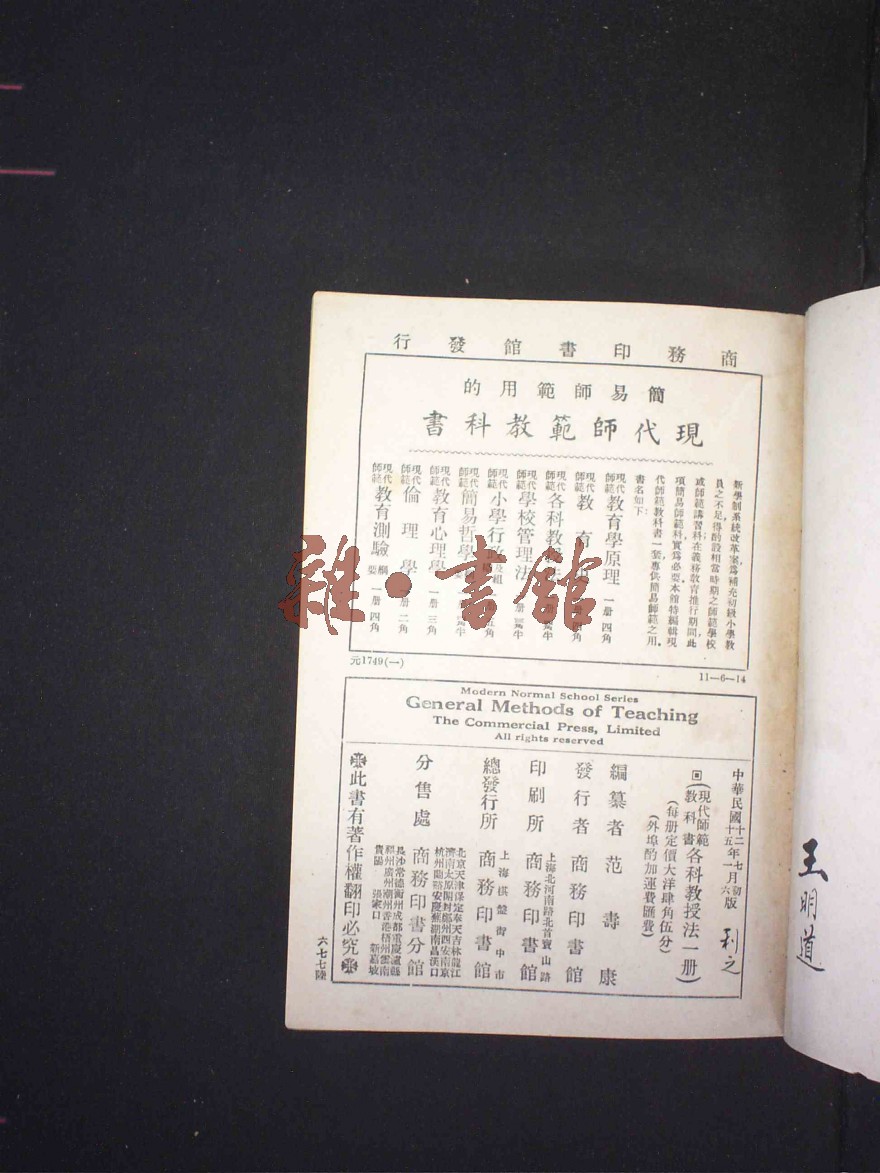 商務印書館發行
簡易師範用的
現代師範教科書
新學制系統改革案爲補充初級小學教
員之不足得酌設相當時期之師範學校
或師範講習科在義務教育推行期間此
項簡易師範科實爲必要本館特編輯現
代師範教科書一套專供簡易師範之用
書名如下
現代師範 教育學原理 一册 四角
現代師範 教育
現代師範 各科教授
現代師範 學校管理法
現代師範 小學行政
現代師範 簡易哲學
現代師範 教育心理學 一册 三角
現代師範 倫理學 一册 二角
現代師範 教育測驗綱要 一册 四角
元1749(一)
11—6—14
Modern Normal School Series
General Methods of Teaching
The Commercial Press, Limited
All rights reserved
中華民國十二年七月初版
十五年一月六版
(現代師範教科書 各科教授法一册)
(每册定價大洋肆角伍分)
(外埠酌加運費匯費)
編纂者 范壽康
發行者 商務印書館
印刷所 上海北河南路北首寶山路 商務印書館
總發行所 上海棋盤街中市 商務印書館
分售處 商務印書分館
北京天津保定奉天吉林龍江
濟南太原開封鄭州西安南京
杭州蘭谿安慶蕪湖南昌漢口
長沙常德衡州成都重慶瀘縣
福州廣州潮州香港梧州雲南
貴陽 張家口 新嘉坡
此書有著作權翻印必究
六七七陸
王明道
雜·書館